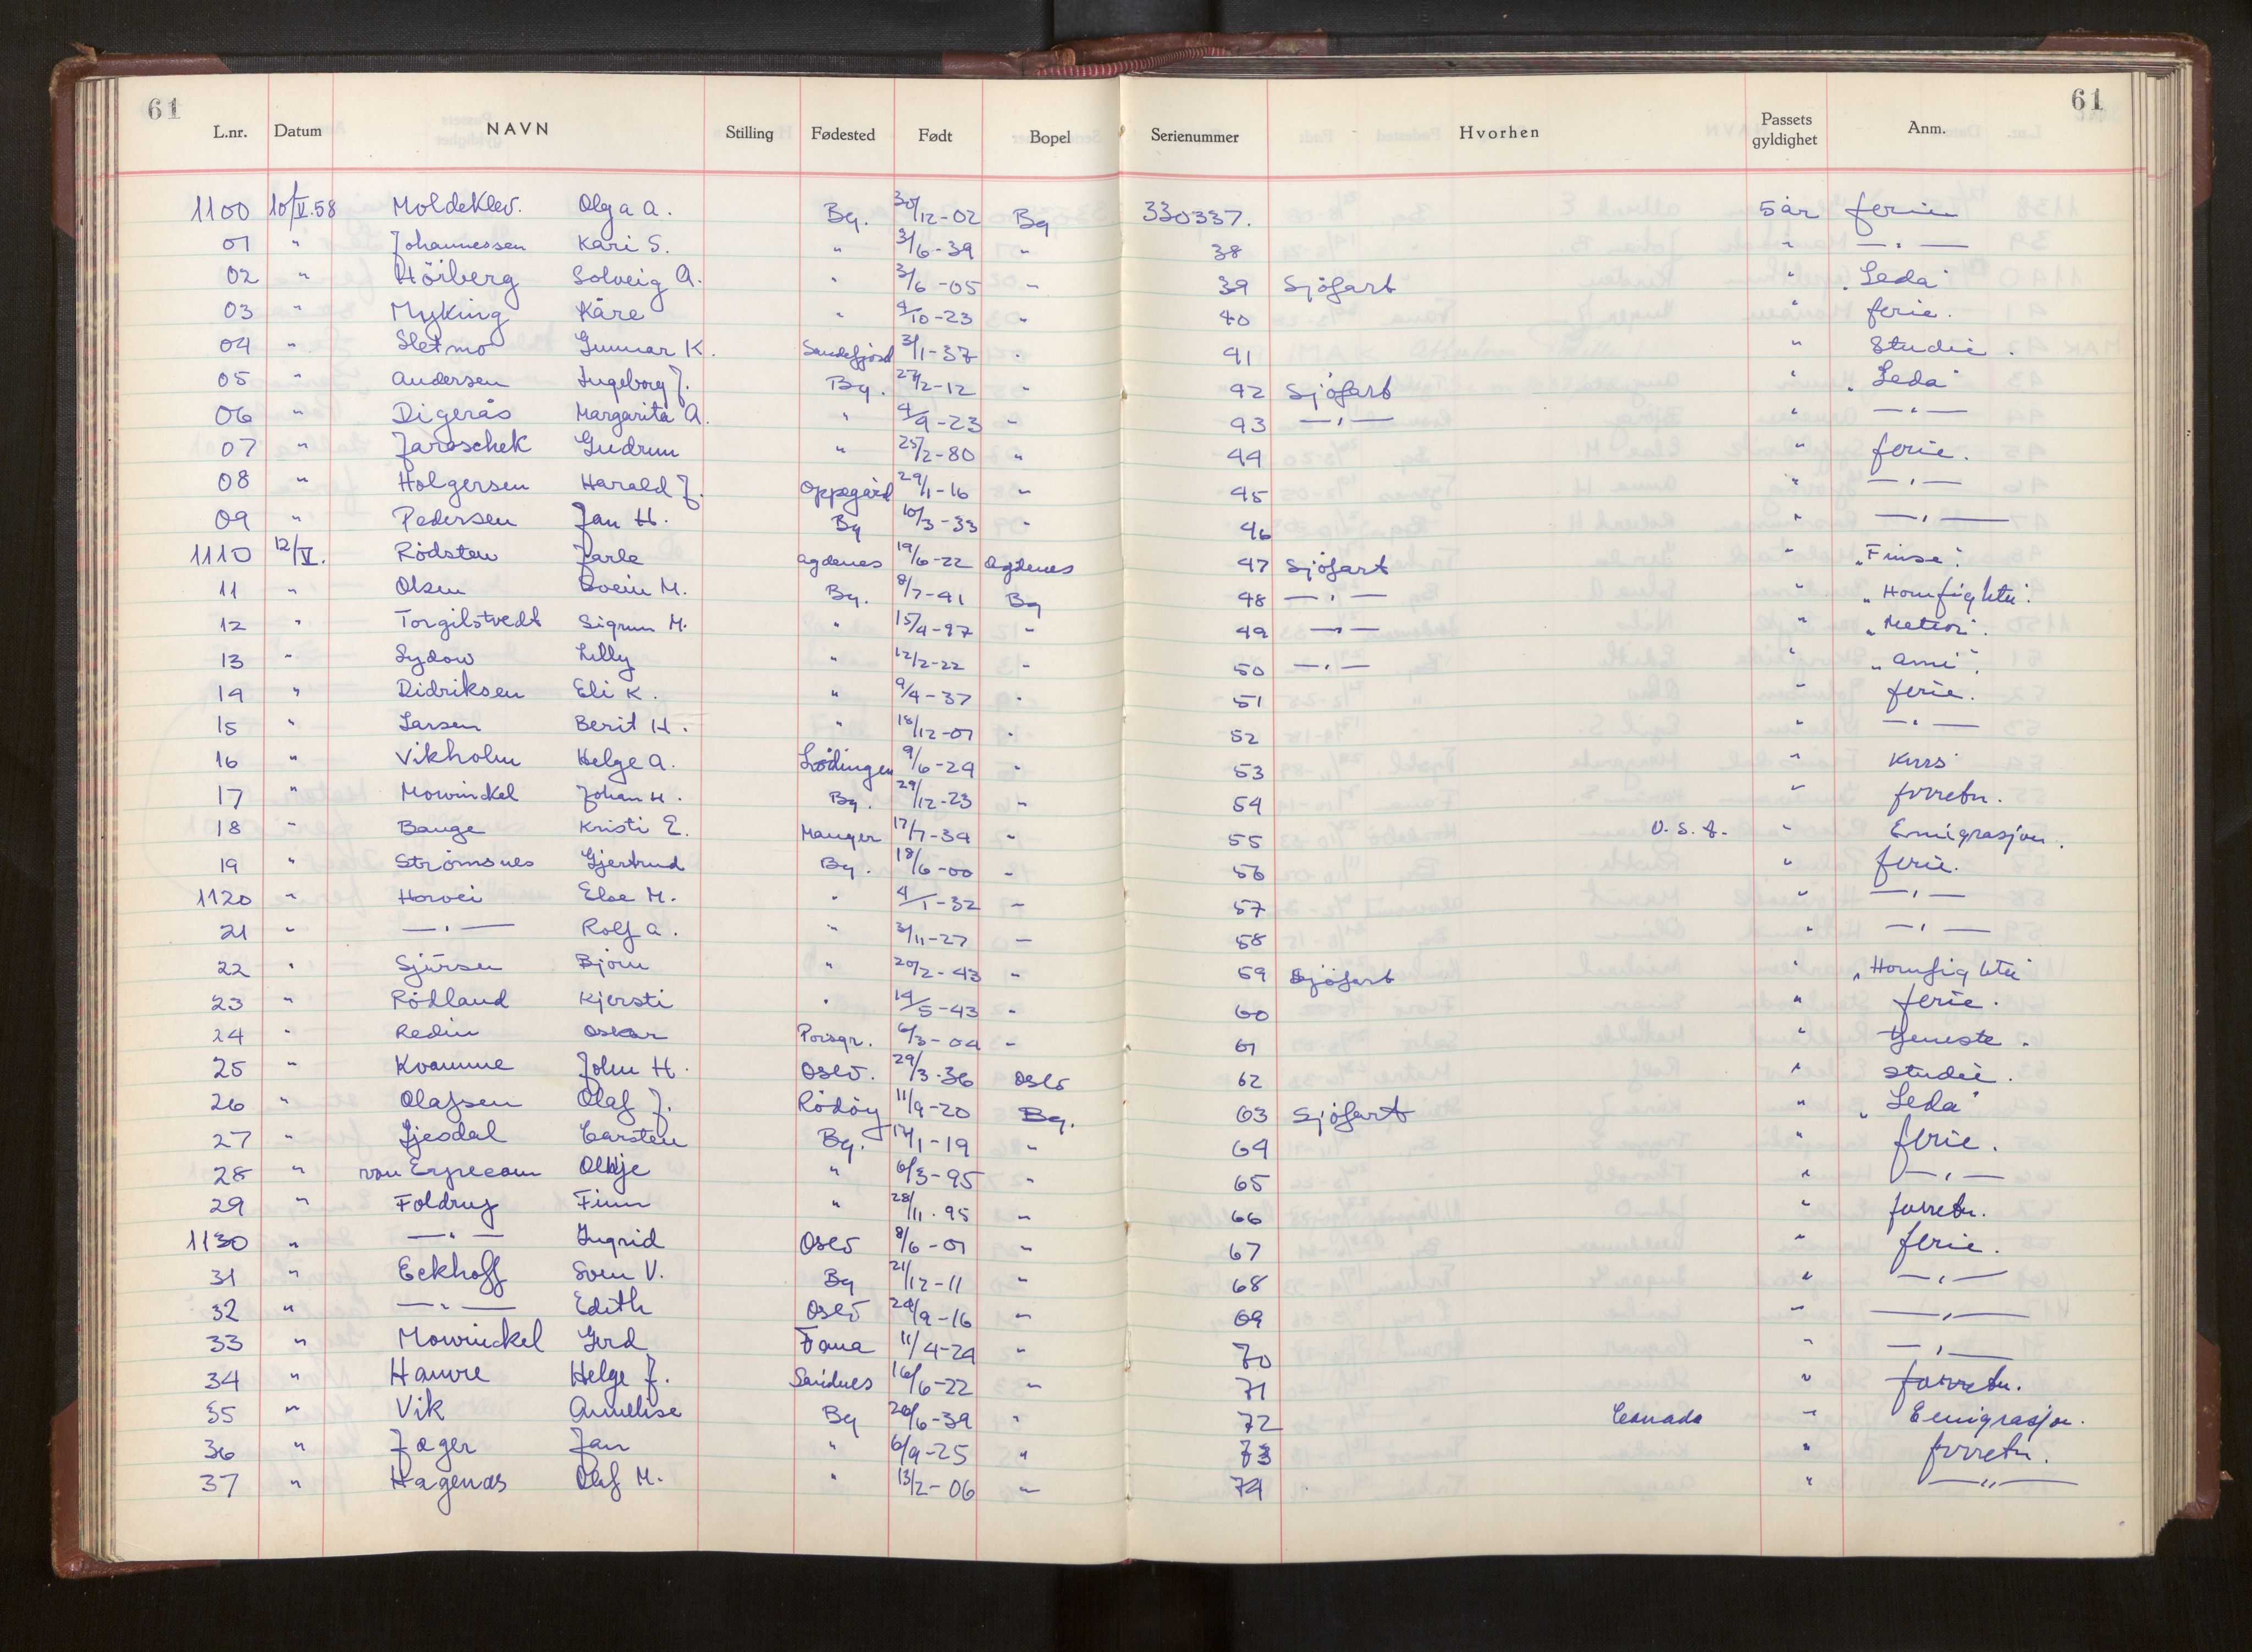 61 61
L.nr. Datum NAVN Stilling Fødested Født Bopel Serienummer Hvorhen Passets gyldighet Anm.
1100 10/V.58 Moldeklev. Olga A. Bg. 30/12-02 Bg 330337. 5 år ferie
01 " Johannessen Kari S. " 3/6-39 " 38 " —"—
02 " Höiberg Solveig A. " 3/6-05 " 39 Sjöfart " "Leda"
03 " Myking Kåre " 4/10-23 " 40 " ferie.
04 " Sletmo Gunnar K. Sandefjord 3/1-37 " 41 " Studie.
05 " Andersen Ingeborg J. Bg. 27/2-12 " 42 Sjöfart " "Leda"
06 " Digerås Margarita A. " 4/9-23 " 43 —"— " —"—
07 " Jaroschek Gudrun " 25/2-80 " 44 " ferie.
08 " Holgersen Harald J. Oppegård 29/1-16 " 45 " —"—
09 " Pedersen Jan H. Bg 10/3-33 " 46 " —"—
1110 12/V. Rödsten Jarle Agdenes 19/6-22 Agdenes 47 Sjöfart " "Finse".
11 " Olsen Svein M. Bg. 8/7-41 Bg 48 —"— " "Homfighter".
12 " Torgilstvedt Sigrun M. " 15/4-97 " 49 —"— " "Meteor".
13 " Sydow Lilly " 12/2-22 " 50 —"— " "Arni".
14 " Didriksen Eli K. " 9/4-37 " 51 " ferie.
15 " Larsen Berit H. " 18/12-07 " 52 " —"—
16 " Vikholm Helge A. Lödingen 9/6-29 " 53 " Kurs
17 " Mowinckel Johan H. Bg. 29/12-23 " 54 " forretn.
18 " Bauge Kristi E. Manger 17/7-39 " 55 U.S.A. " Emigrasjon.
19 " Strömsnes Gjertrud Bg. 18/6-00 " 56 " ferie.
1120 " Horvei Else M. " 4/1-32 " 57 " —"—
21 " —"— Rolf A. " 3/11-27 — 58 " —"—
22 " Sjursen Björn " 20/2-43 " 59 Sjöfart " "Homfighter"
23 " Rödland Kjersti " 14/5-43 " 60 " ferie.
24 " Redin Oskar Porsgr. 6/3-04 " 61 " tjeneste.
25 " Kvamme John H. Oslo. 29/3-36 Oslo 62 " studie.
26 " Olafsen Olaf J. Rödöy 11/9-20 Bg. 63 Sjöfart " "Leda"
27 " Gjesdal Carsten Bg. 14/1-19 " 64 " ferie.
28 " von Erpecom " 6/3-95 " 65 " —"—
29 " Foldrup Finn " 28/11-95 " 66 " forretn.
1130 " —"— Ingrid Oslo 8/6-01 " 67 " ferie.
31 " Eckhoff Sven V. Bg 21/12-11 " 68 " —"—
32 " —"— Edith Oslo 24/9-16 " 69 " —"—
33 " Mowinckel Gerd Fana 11/4-24 " 70 " —"—
34 " Hamre Helge J. Sandnes 16/6-22 " 71 " forretn.
35 " Vik Annelise Bg 20/6-39 " 72 Canada " Emigrasjon.
36 " Jæger Jan " 6/9-25 " 73 " forretn.
37 " Hagenæs Olaf M. " 13/2-06 " 74 " —"—